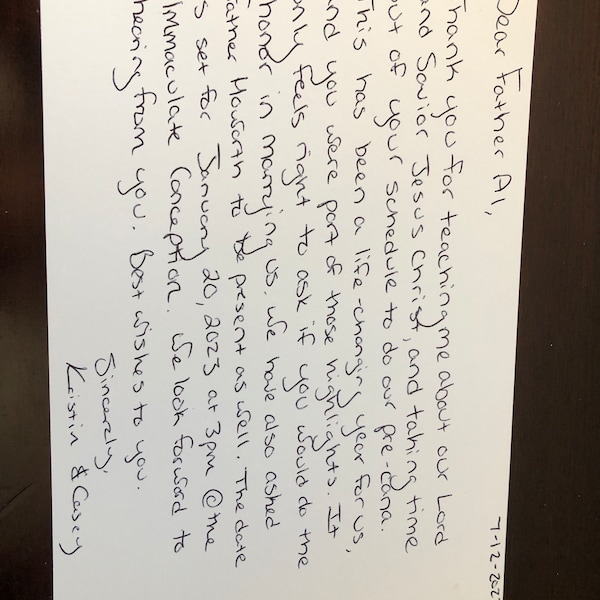 7-12-202
Dear Father Al,
Thank you for teaching me about our Lord
and Savior Jesus Christ, and taking time
out of your schedule to do our pre-cana.
This has been a life-changing year for us,
and you were part of those highlights. It
only feels right to ask if you would do the
honor in marrying us. We have also asked
Father Howarth to be present as well. The date
is set for January 20, 2023 at 3pm @ the
Immaculate Conception. We look forward to
hearing from you. Best wishes to you.
Sincerely,
Kristin & Casey